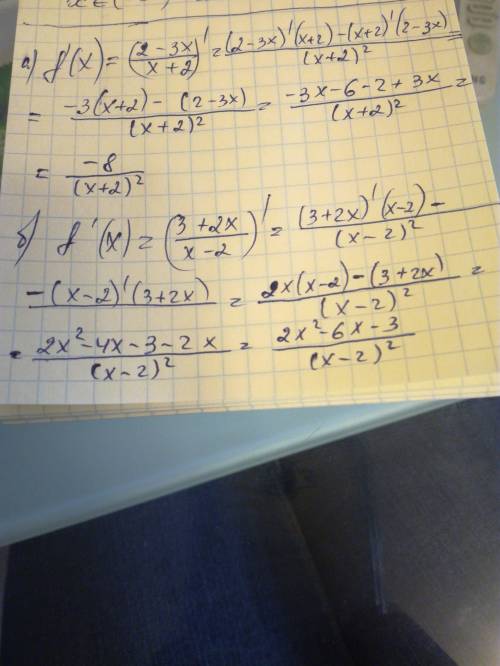 а) f'(x) = ((2-3x)/(x+2))' = ((2-3x)'(x+2)-(x+2)'(2-3x))/(x+2)² =
= (-3(x+2)-(2-3x))/(x+2)² = (-3x-6-2+3x)/(x+2)² =
= -8/(x+2)²
б) f'(x) = ((3+2x)/(x-2))' = ((3+2x)'(x-2)-)/(x-2)²
-(x-2)'(3+2x) = (2x(x-2)-(3+2x))/(x-2)² =
= (2x²-4x-3-2x)/(x-2)² = (2x²-6x-3)/(x-2)²